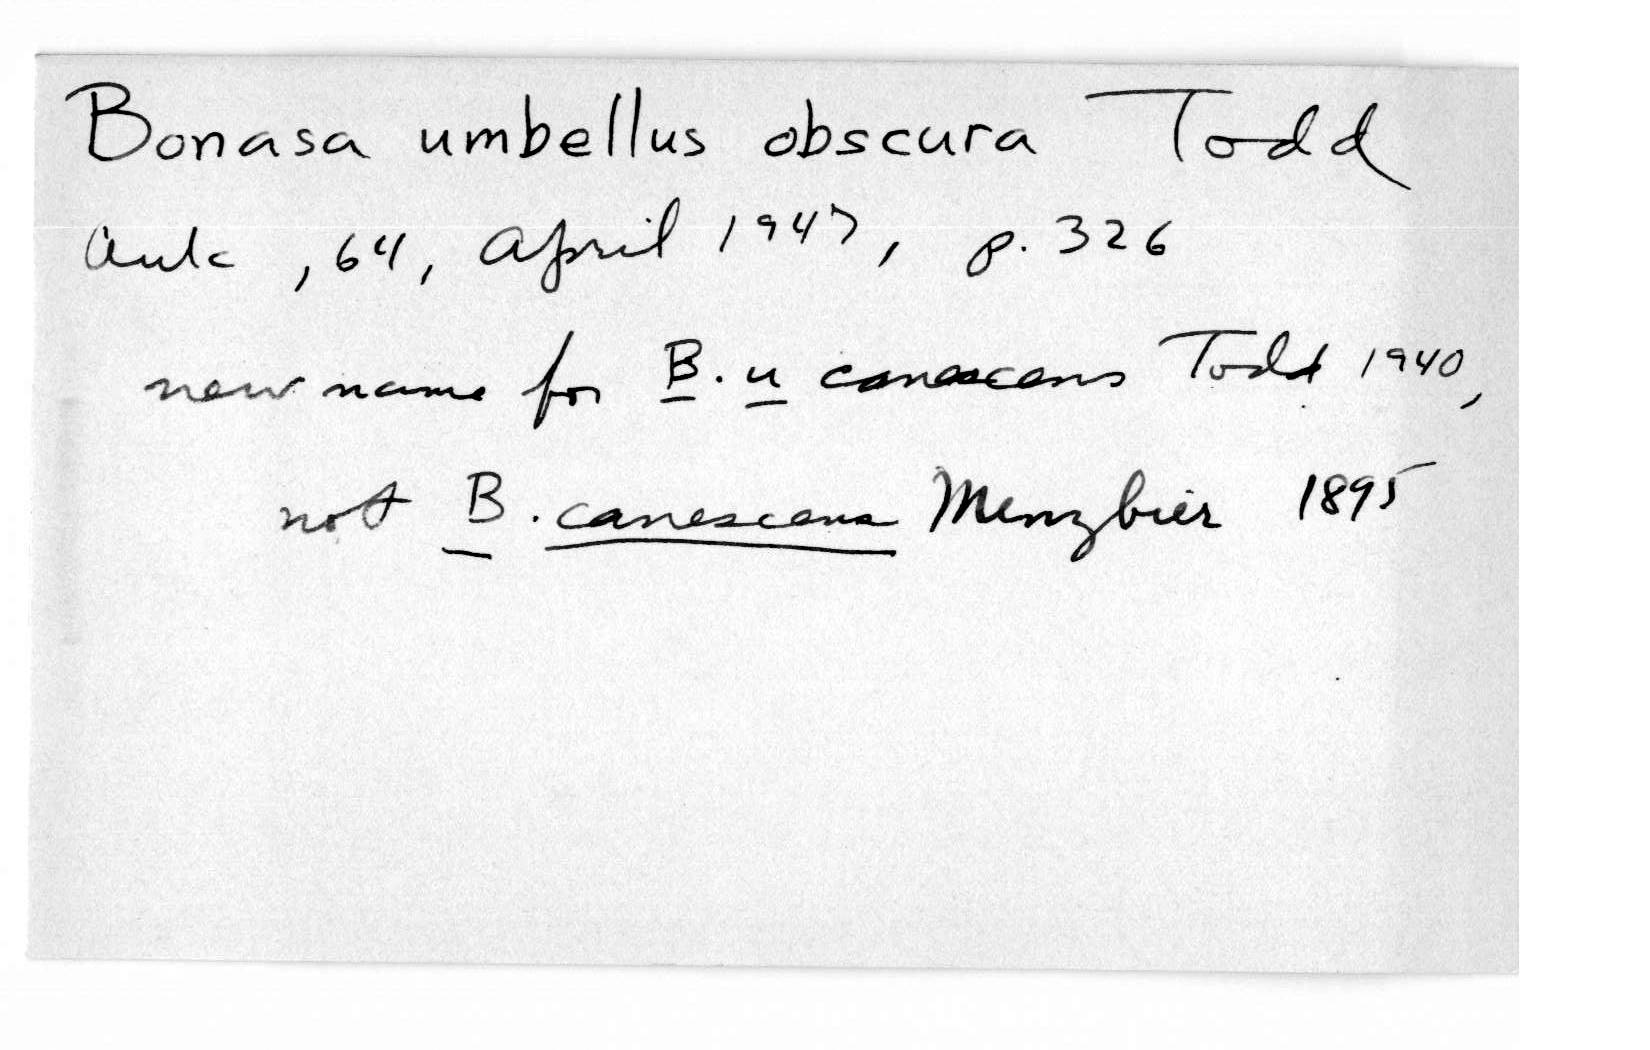 Bonasa umbellus obscura Todd
Auk , 64, April 1947, p. 326
new name for B. u canescens Todd 1940,
not B. canescens Menzbier 1895